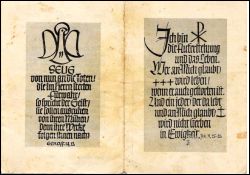 SELIG
von nun an die Toten,
die im Herrn sterben
Fürwahr,
so spricht der Geist,
sie sollen ausruhen
von ihren Mühen,
denn ihre Werke
folgen ihnen nach
Ich bin
die Auferstehung
und das Leben.
Wer an Mich glaubt,
wird leben,
wenn er auch gestorben ist.
Und ein jeder der da lebt
und an Mich glaubt
wird nicht sterben
in Ewigkeit.